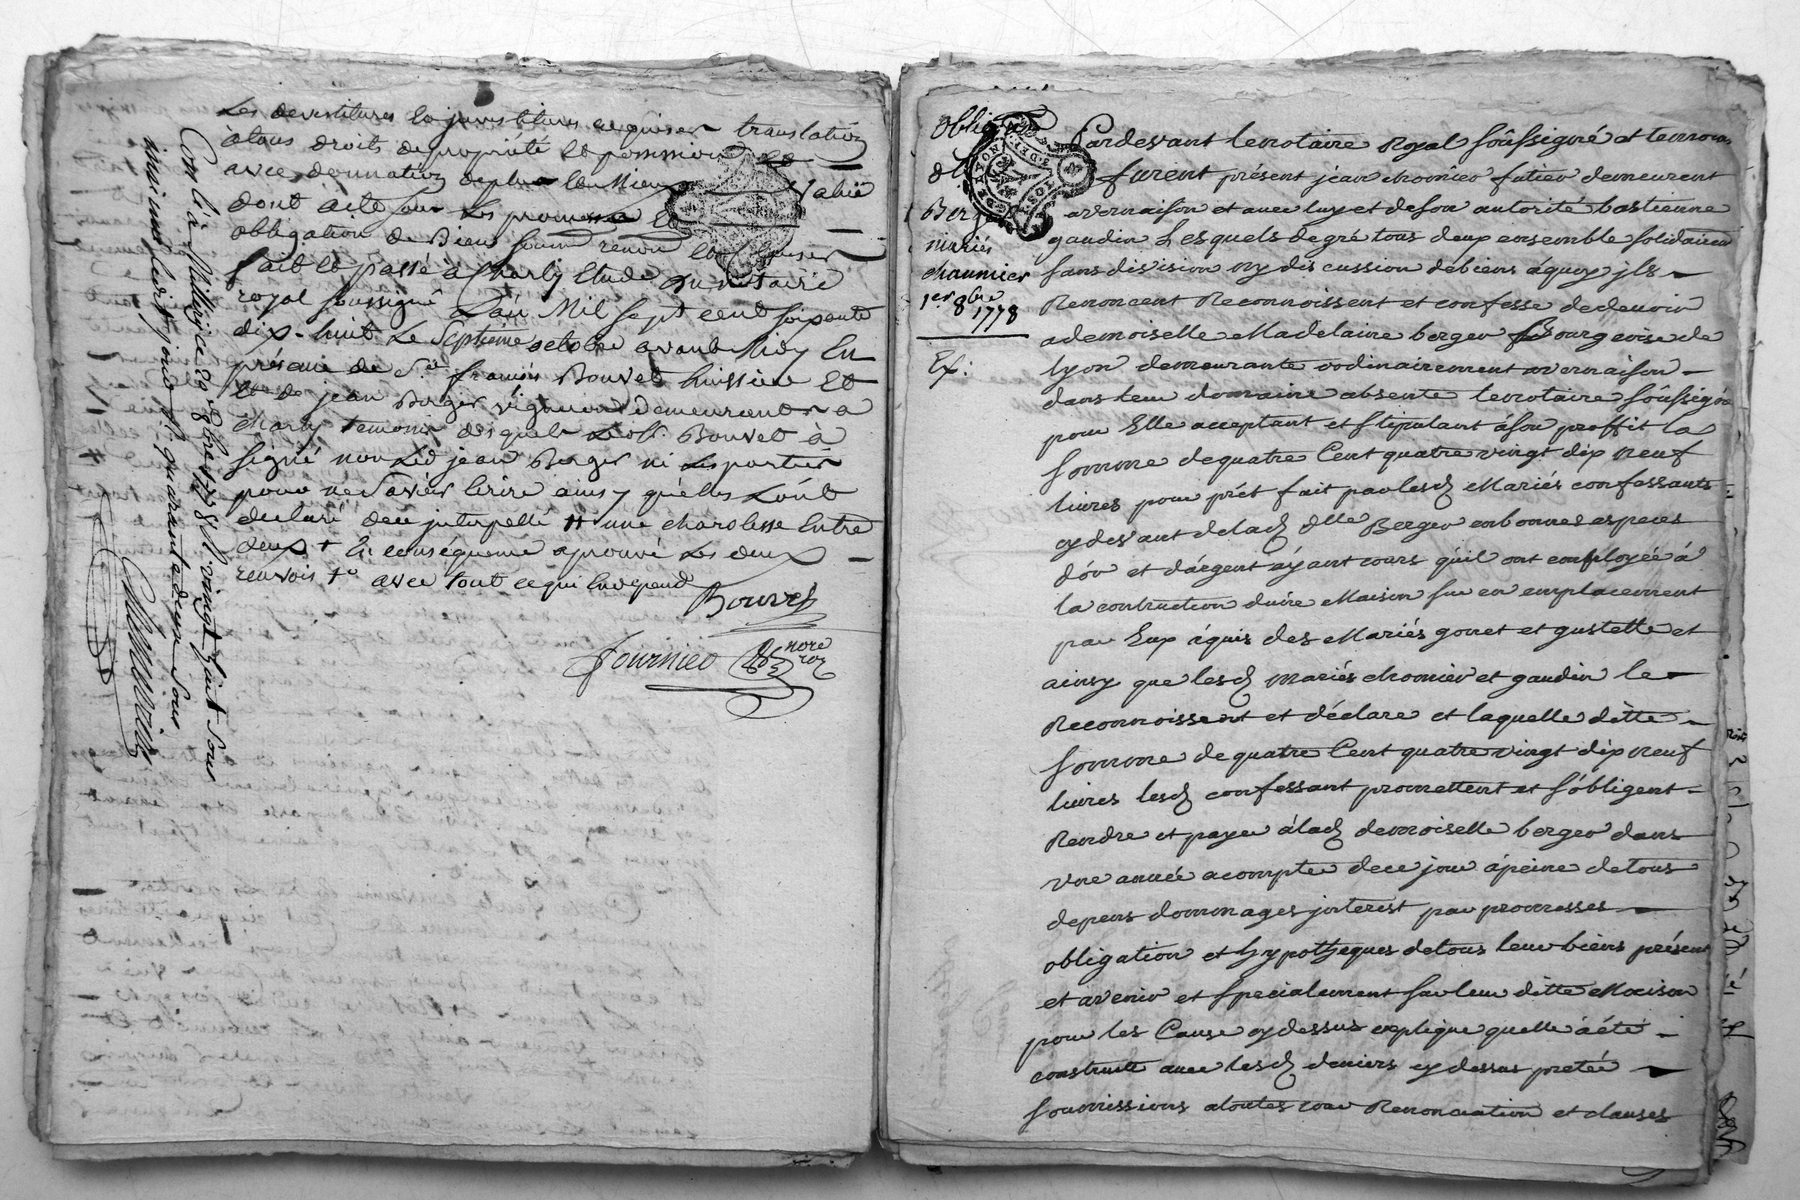 Les devestitures les jnvestitures requises translation
à tous droits de propriété et possession
avec donnation de plus value
dont acte sous les promesses
obligation de Biens soum renon clauses
fait et passé à Charly Etude du notaire
royal soussigné L'an Mil sept cent soixante
dix-huit Le septieme octobre avant Midy En
présence de Sr. françois Bouvet huissier Et
Et de jean Berger vigneron demeurants a
charly temoins desquels Led. Sr. Bouvet à
signé non Led jean Berger ni Les parties
pour ne savoir Ecrire ainsy quelles Lont
declaré de ce jnterpellé # une charolesse Entre
deux + En conséquence aprouvé Les deux
renvois avec tout ce qui En depend
Bouvet
fournier nore roy
Conlé à Millery ce 20 8bre 1778 R vingt huit sous
quarante deux sous
Obligon
De
Berger
mariés
chaumier
1er 8bre
1778
Ex:
Pardevant le notaire Royal soussigné et temoins
furent présent jean chomier futier demeurent
a vernaison et avec luy et de son autorité bastienne
gaudin Lesquels de gré tous deux ensemble solidaires
sans division ny discussion de biens à quoy jls
Renoncent Reconnoissent et confesse de devoir
a demoiselle Madelaine berger Bourgeoise de
lyon demeurante ordinairement a vernaison
dans leur domaine absente le notaire soussigné
pour Elle acceptant et stipulant à son proffit la
somme de quatre Cent quatre vingt dix neuf
livres pour prét fait par lesd Mariés confessants
cy devant de lad dlle Berger en bonnes especes
d'or et d'argent ayant cours qu'il ont employée à
la contruction d'une Maison sur un emplacement
par Eux aquis des Mariés gonet et gustelle et
ainsy que lesd mariés chomier et gaudin le
Reconnoissent et déclare et laquelle ditte
somme de quatre Cent quatre vingt dix neuf
livres lesd confessant promettent et s'obligent
Rendre et payer à lad demoiselle berger dans
une année a compter de ce jour à peine de tous
depens dommages jnterest par promesses
obligation et hypotheques de tous leur biens présent
et avenir et specialement sur leur ditte Maison
pour les Cause cy dessus explique quelle à été
construitte avec lesd deniers cy dessus pretée
soumissions a toutes cour Renonciation et clauses